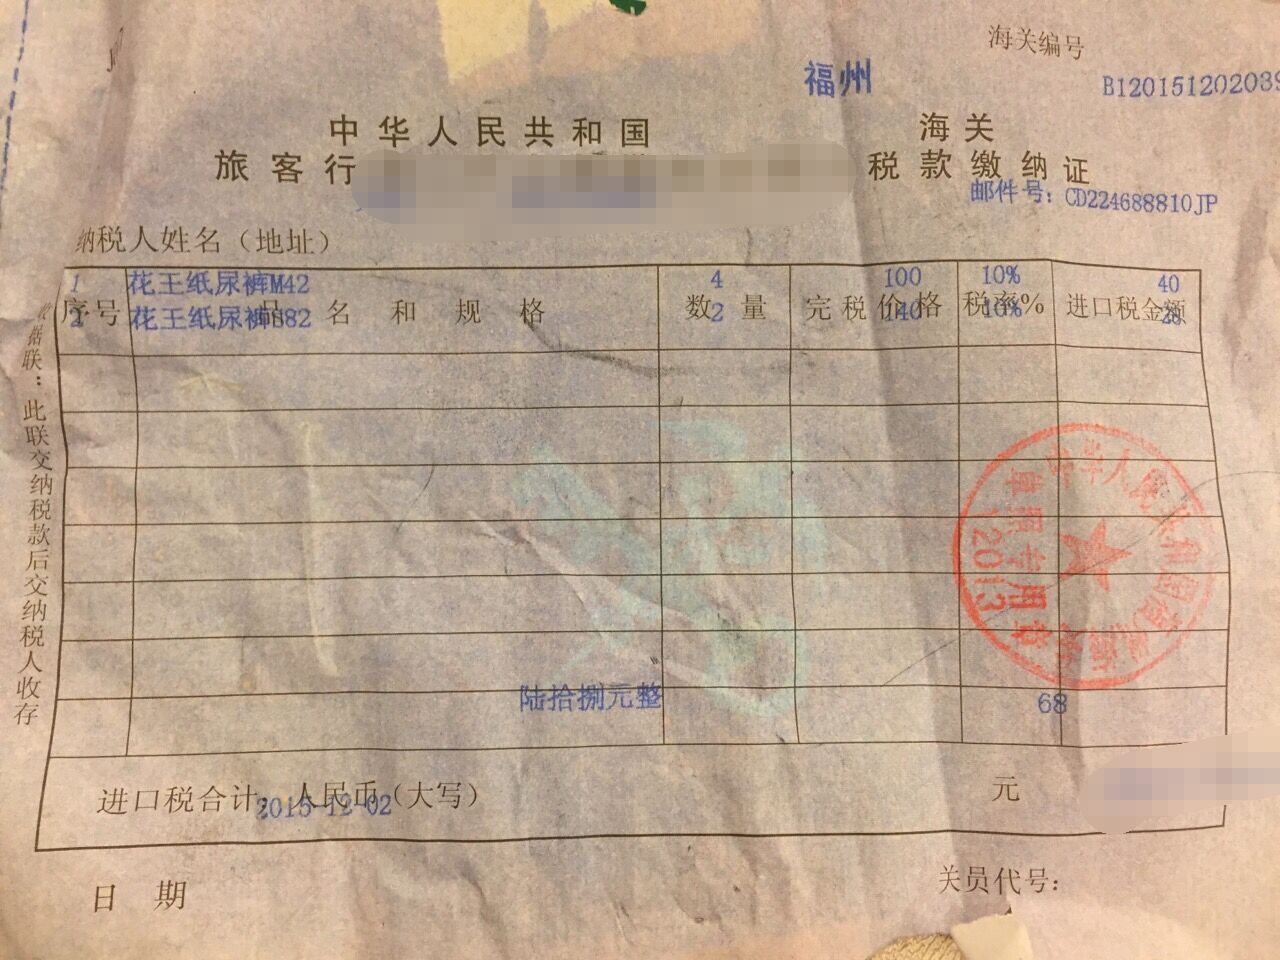 海关编号
福州
B12015120203
中华人民共和国 海关
旅客行 税款缴纳证
邮件号: CD224688810JP
纳税人姓名（地址）
1 花王纸尿裤M42 4 100 10% 40
序号 品名和规格 数量 完税价格 税率% 进口税金额
2 花王纸尿裤S82 2 140 10% 28
收据联：此联交纳税款后交纳税人收存
中华人民共和国
专用章
陆拾捌元整 68
进口税合计：人民币（大写） 元
2015-12-02
日期 关员代号：